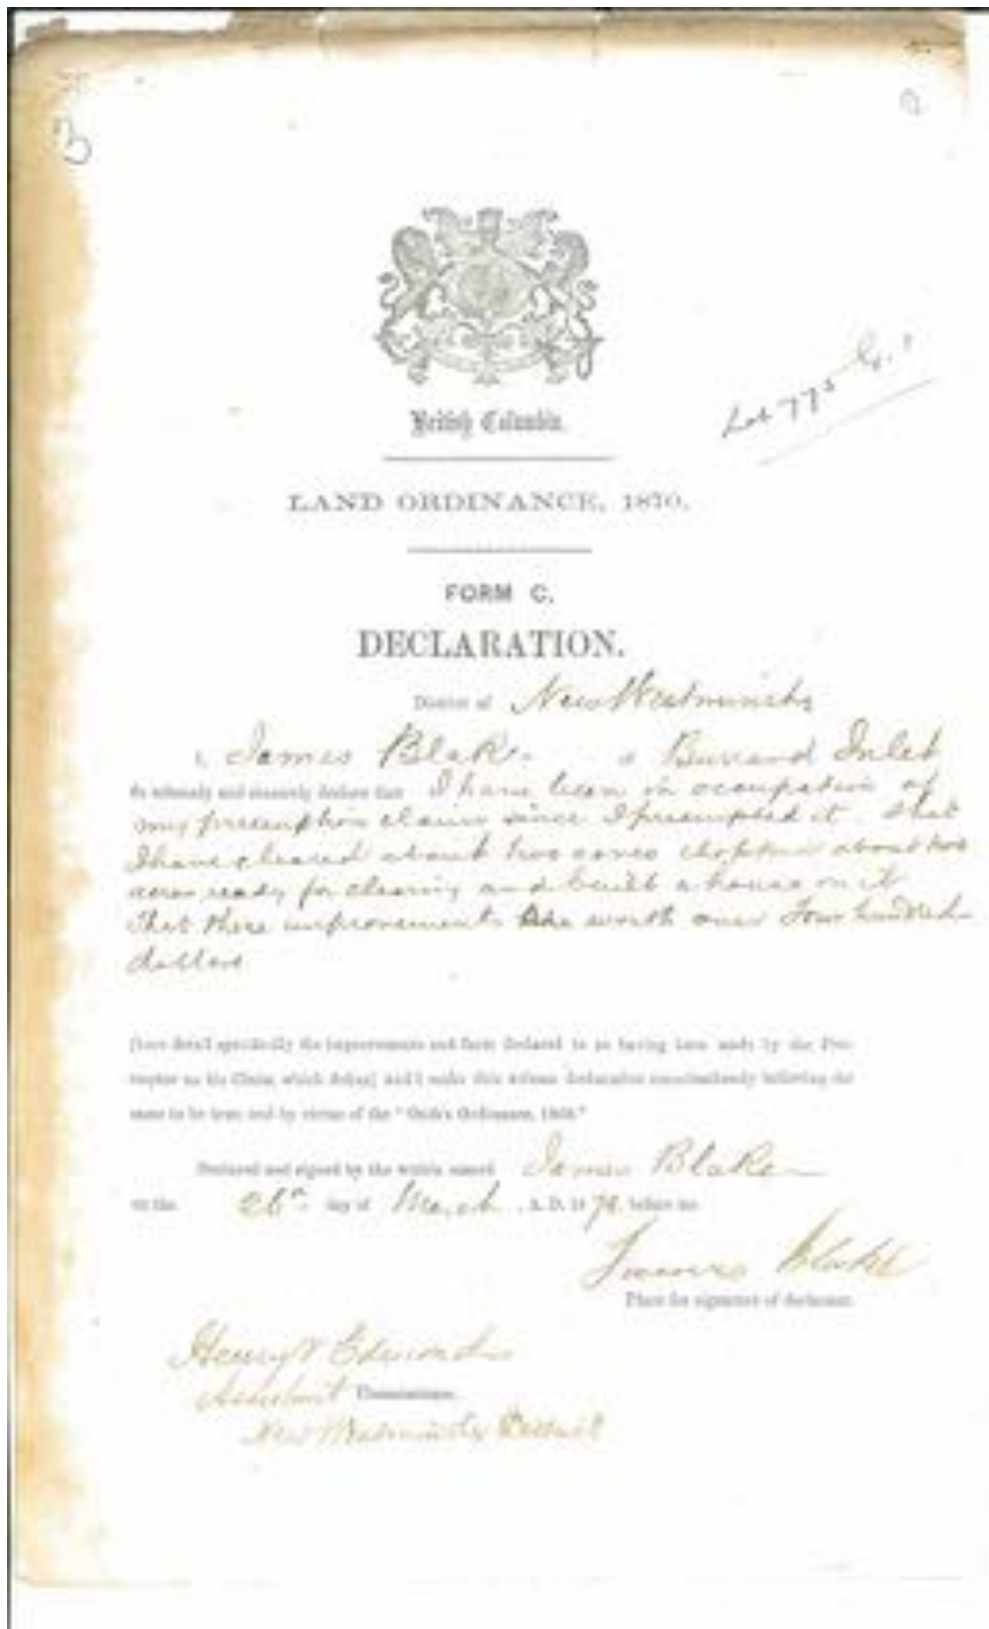 3
British Columbia.
Lot 773 G. 1
LAND ORDINANCE, 1870.
FORM C.
DECLARATION.
District of New Westminster
I, James Blake of Burrard Inlet
do solemnly and sincerely declare that I have been in occupation of
my preemption claim since I preempted it. That
I have cleared about two acres chopped about two
acres ready for clearing and built a house on it
That these improvements are worth over Four hundred
dollars
[here detail specifically the improvements and facts declared to as having been made by the Pre-
emptor on his Claim, which
same to be true and by virtue of the " Oath's Ordinance, 1869."
Declared and signed by the within named James Blake
on the 26th day of March, A. D. 18 before me.
James Blake
Place for signature of declarant.
Henry V Edmonds
Assistant Commissioner.
New Westminster District